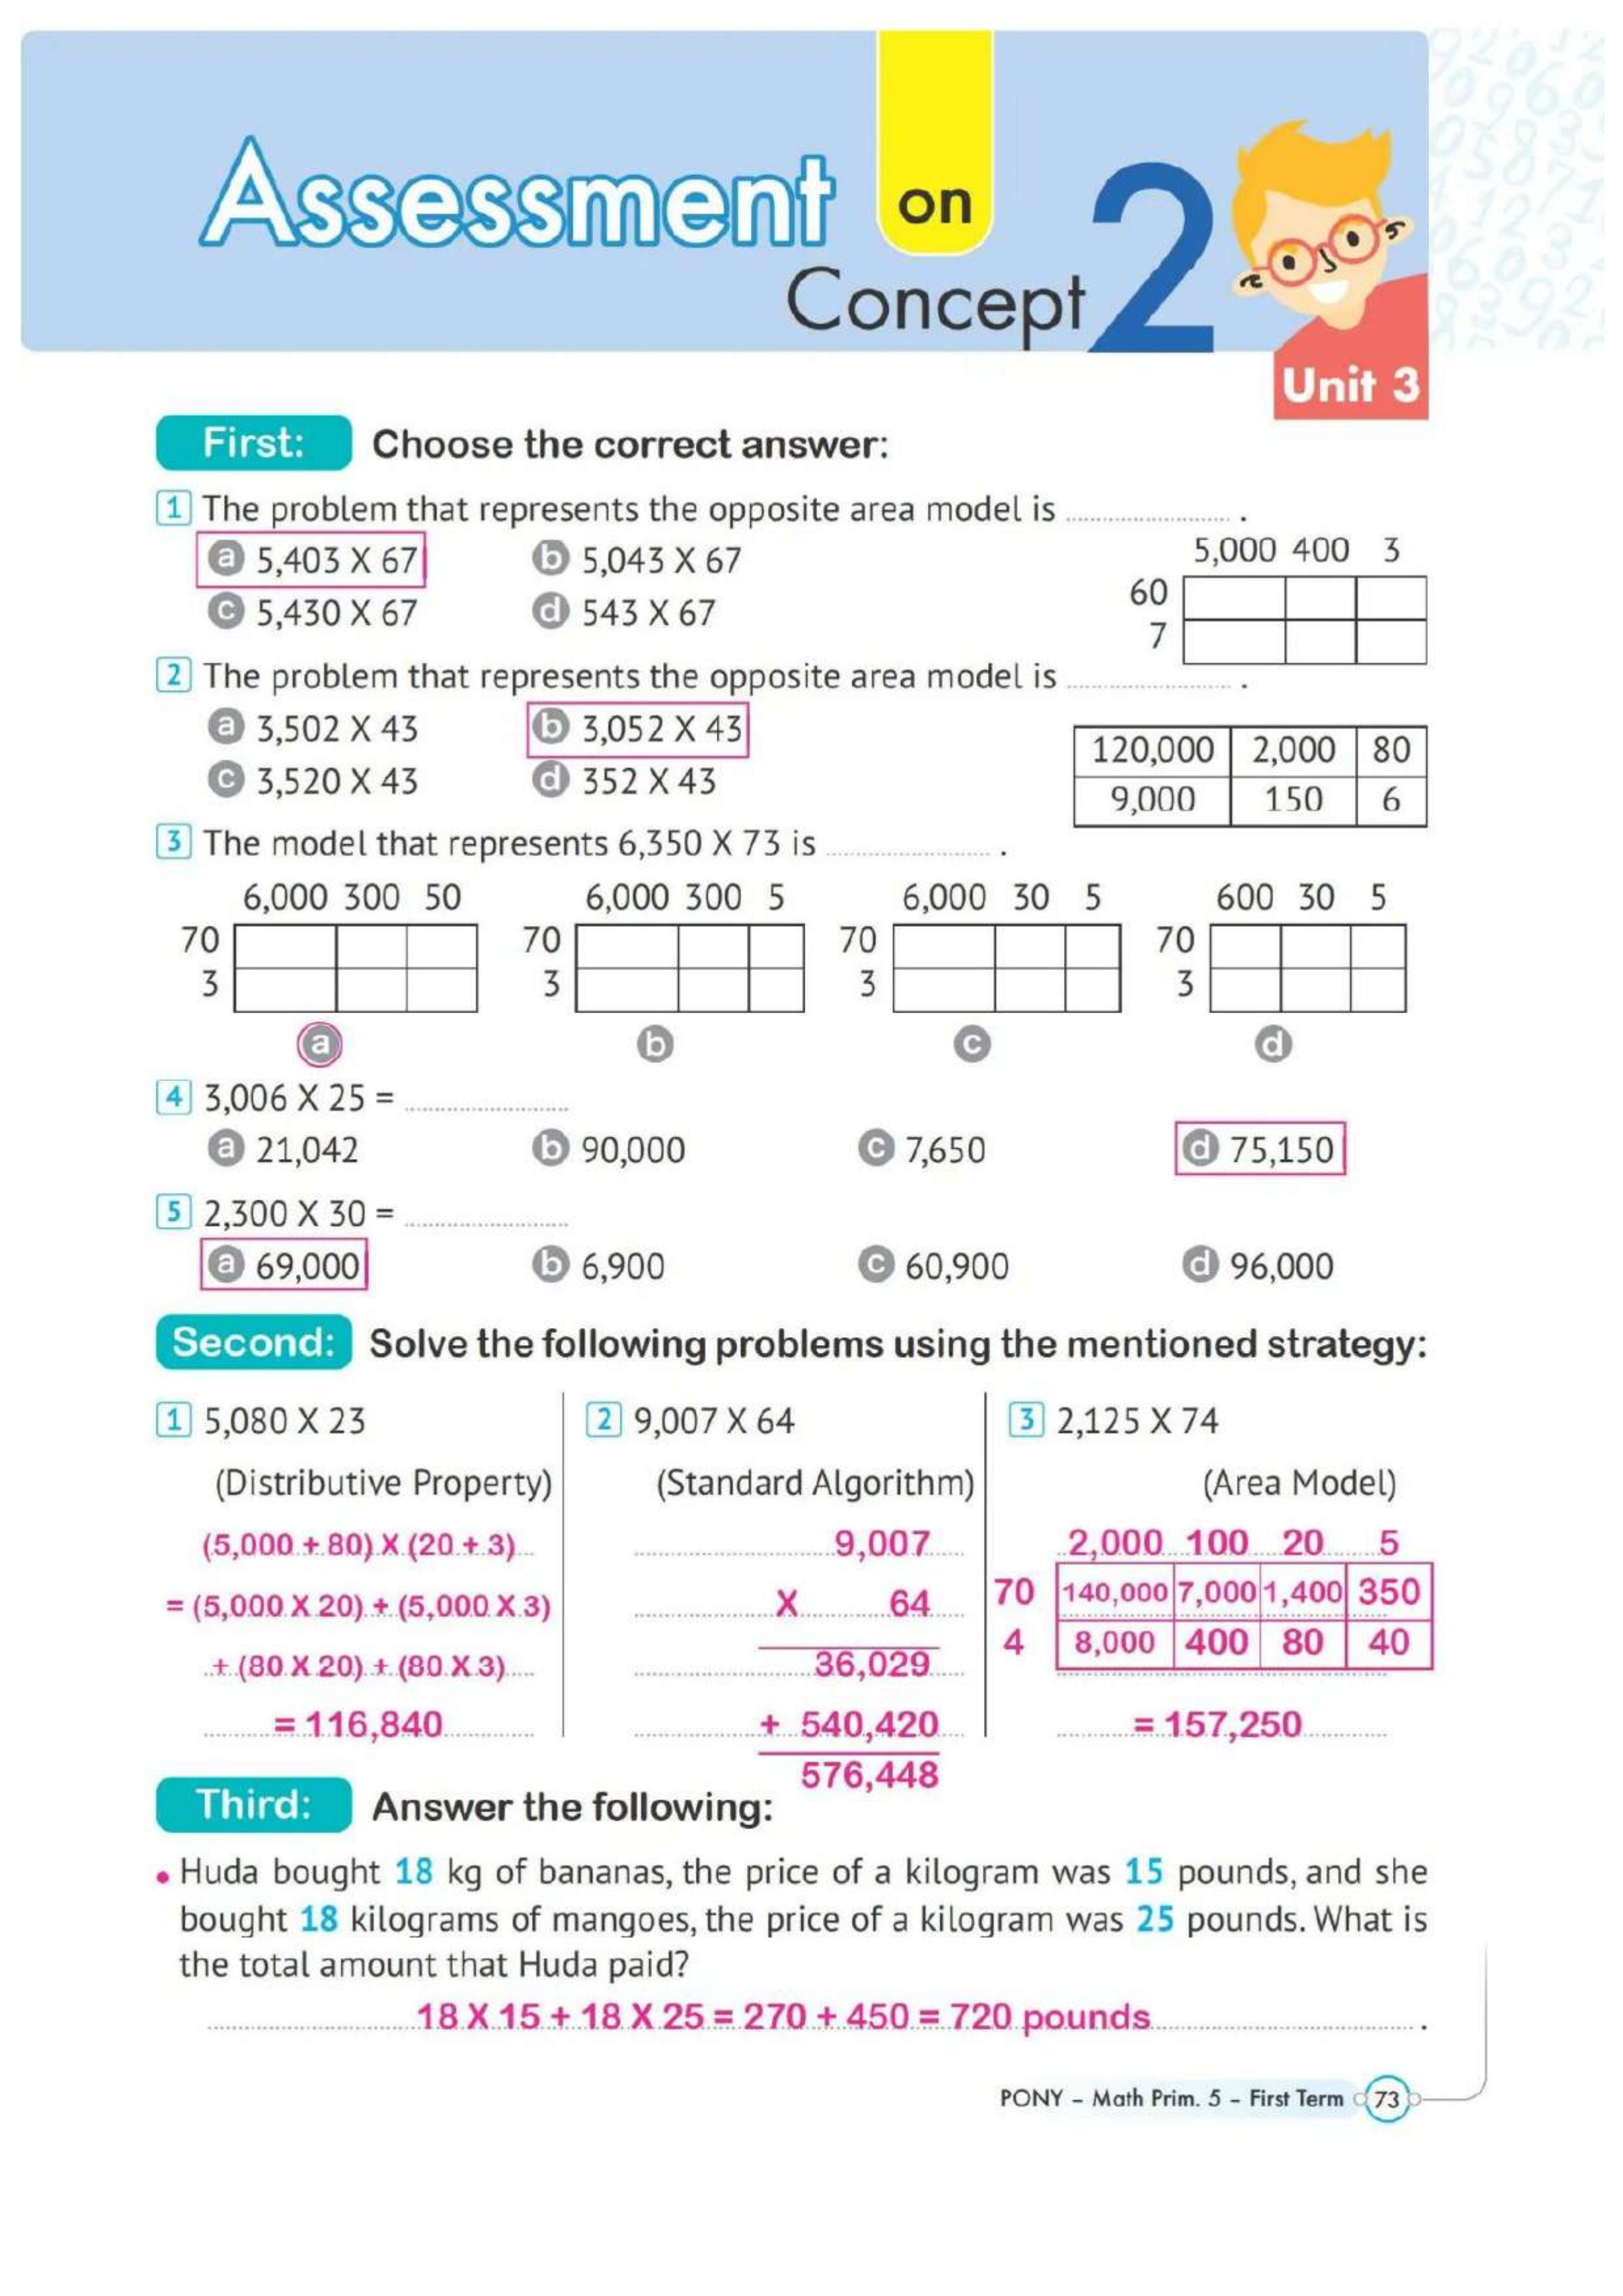 Assessment on
Concept 2
Unit 3
First: Choose the correct answer:
1 The problem that represents the opposite area model is .................... .
a 5,403 X 67 b 5,043 X 67
c 5,430 X 67 d 543 X 67
5,000 400 3
60
7
2 The problem that represents the opposite area model is .................... .
a 3,502 X 43 b 3,052 X 43
c 3,520 X 43 d 352 X 43
120,000 2,000 80
9,000 150 6
3 The model that represents 6,350 X 73 is .................... .
6,000 300 50 6,000 300 5 6,000 30 5 600 30 5
70 70 70 70
3 3 3 3
a b c d
4 3,006 X 25 = ....................
a 21,042 b 90,000 c 7,650 d 75,150
5 2,300 X 30 = ....................
a 69,000 b 6,900 c 60,900 d 96,000
Second: Solve the following problems using the mentioned strategy:
1 5,080 X 23
(Distributive Property)
(5,000 + 80) X (20 + 3)
= (5,000 X 20) + (5,000 X 3)
+ (80 X 20) + (80 X 3)
= 116,840
2 9,007 X 64
(Standard Algorithm)
9,007
X 64
36,029
+ 540,420
576,448
3 2,125 X 74
(Area Model)
2,000 100 20 5
70 140,000 7,000 1,400 350
4 8,000 400 80 40
= 157,250
Third: Answer the following:
• Huda bought 18 kg of bananas, the price of a kilogram was 15 pounds, and she
bought 18 kilograms of mangoes, the price of a kilogram was 25 pounds. What is
the total amount that Huda paid?
18 X 15 + 18 X 25 = 270 + 450 = 720 pounds .
PONY – Math Prim. 5 – First Term 73